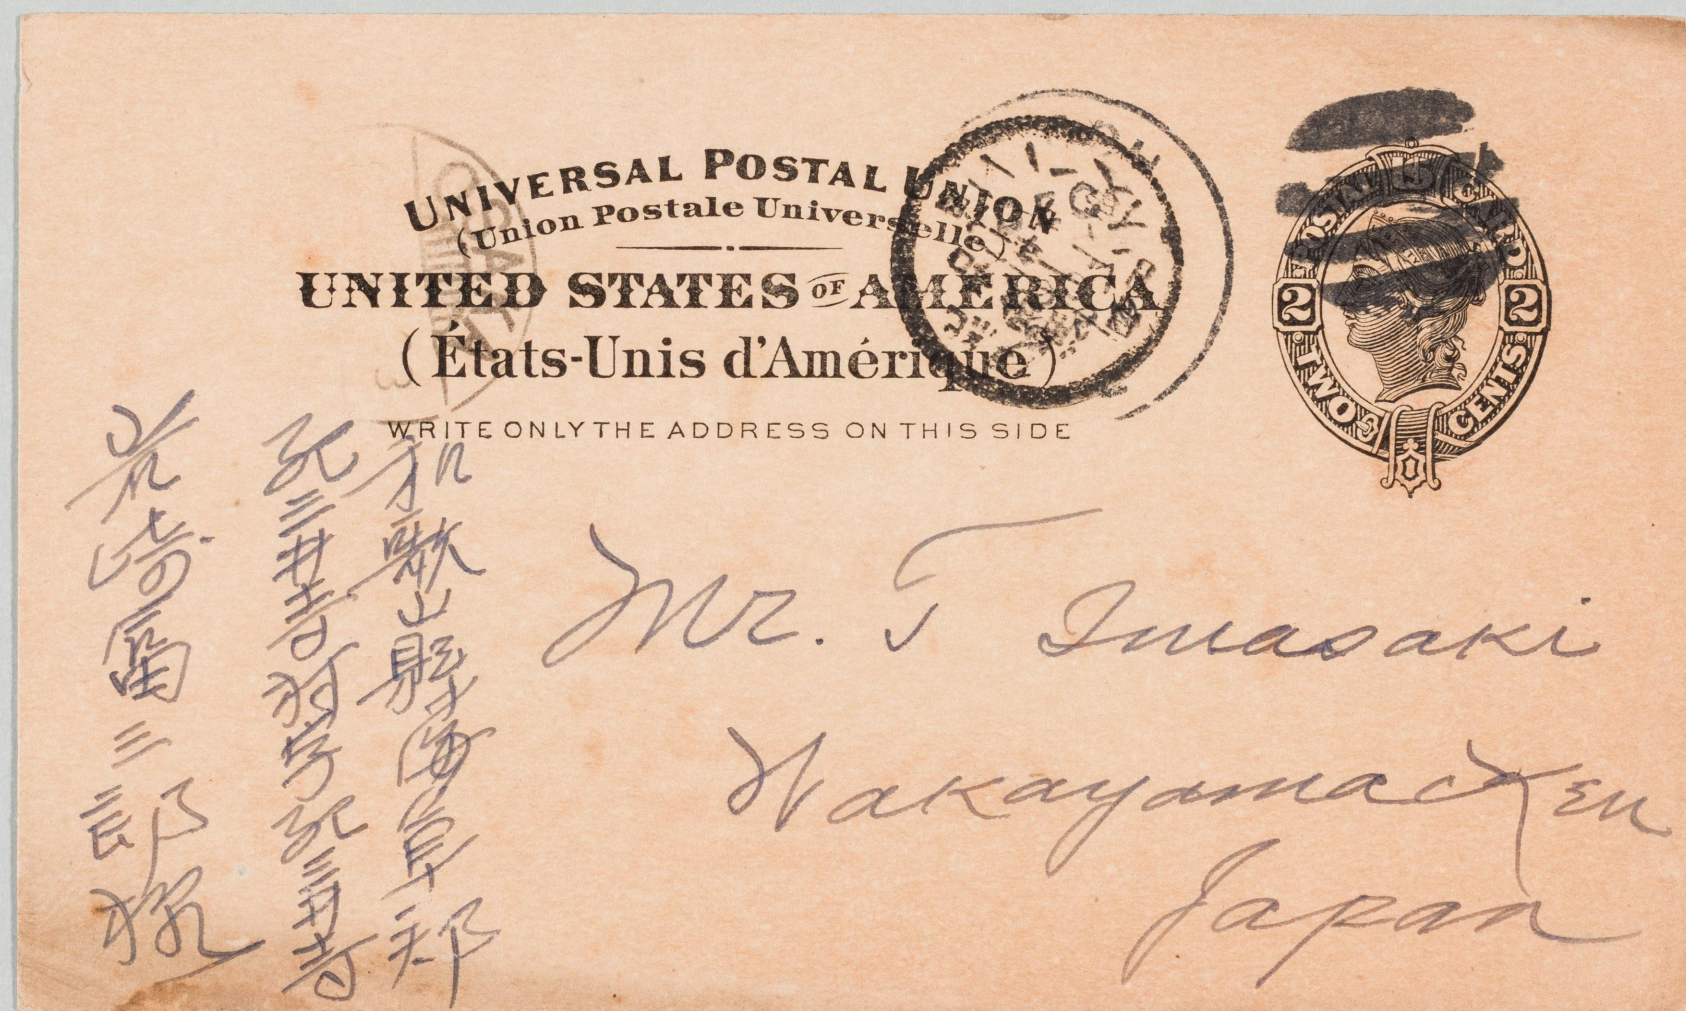 UNIVERSAL POSTAL UNION
(Union Postale Universelle)
UNITED STATES OF AMERICA
(États-Unis d'Amérique)
WRITE ONLY THE ADDRESS ON THIS SIDE
POSTAL CARD
2 2
TWO CENTS
Mr. T Iwasaki
Wakayama Ken
Japan
和歌山縣海草郡
紀三井寺村字紀三井寺
岩崎富三郎様